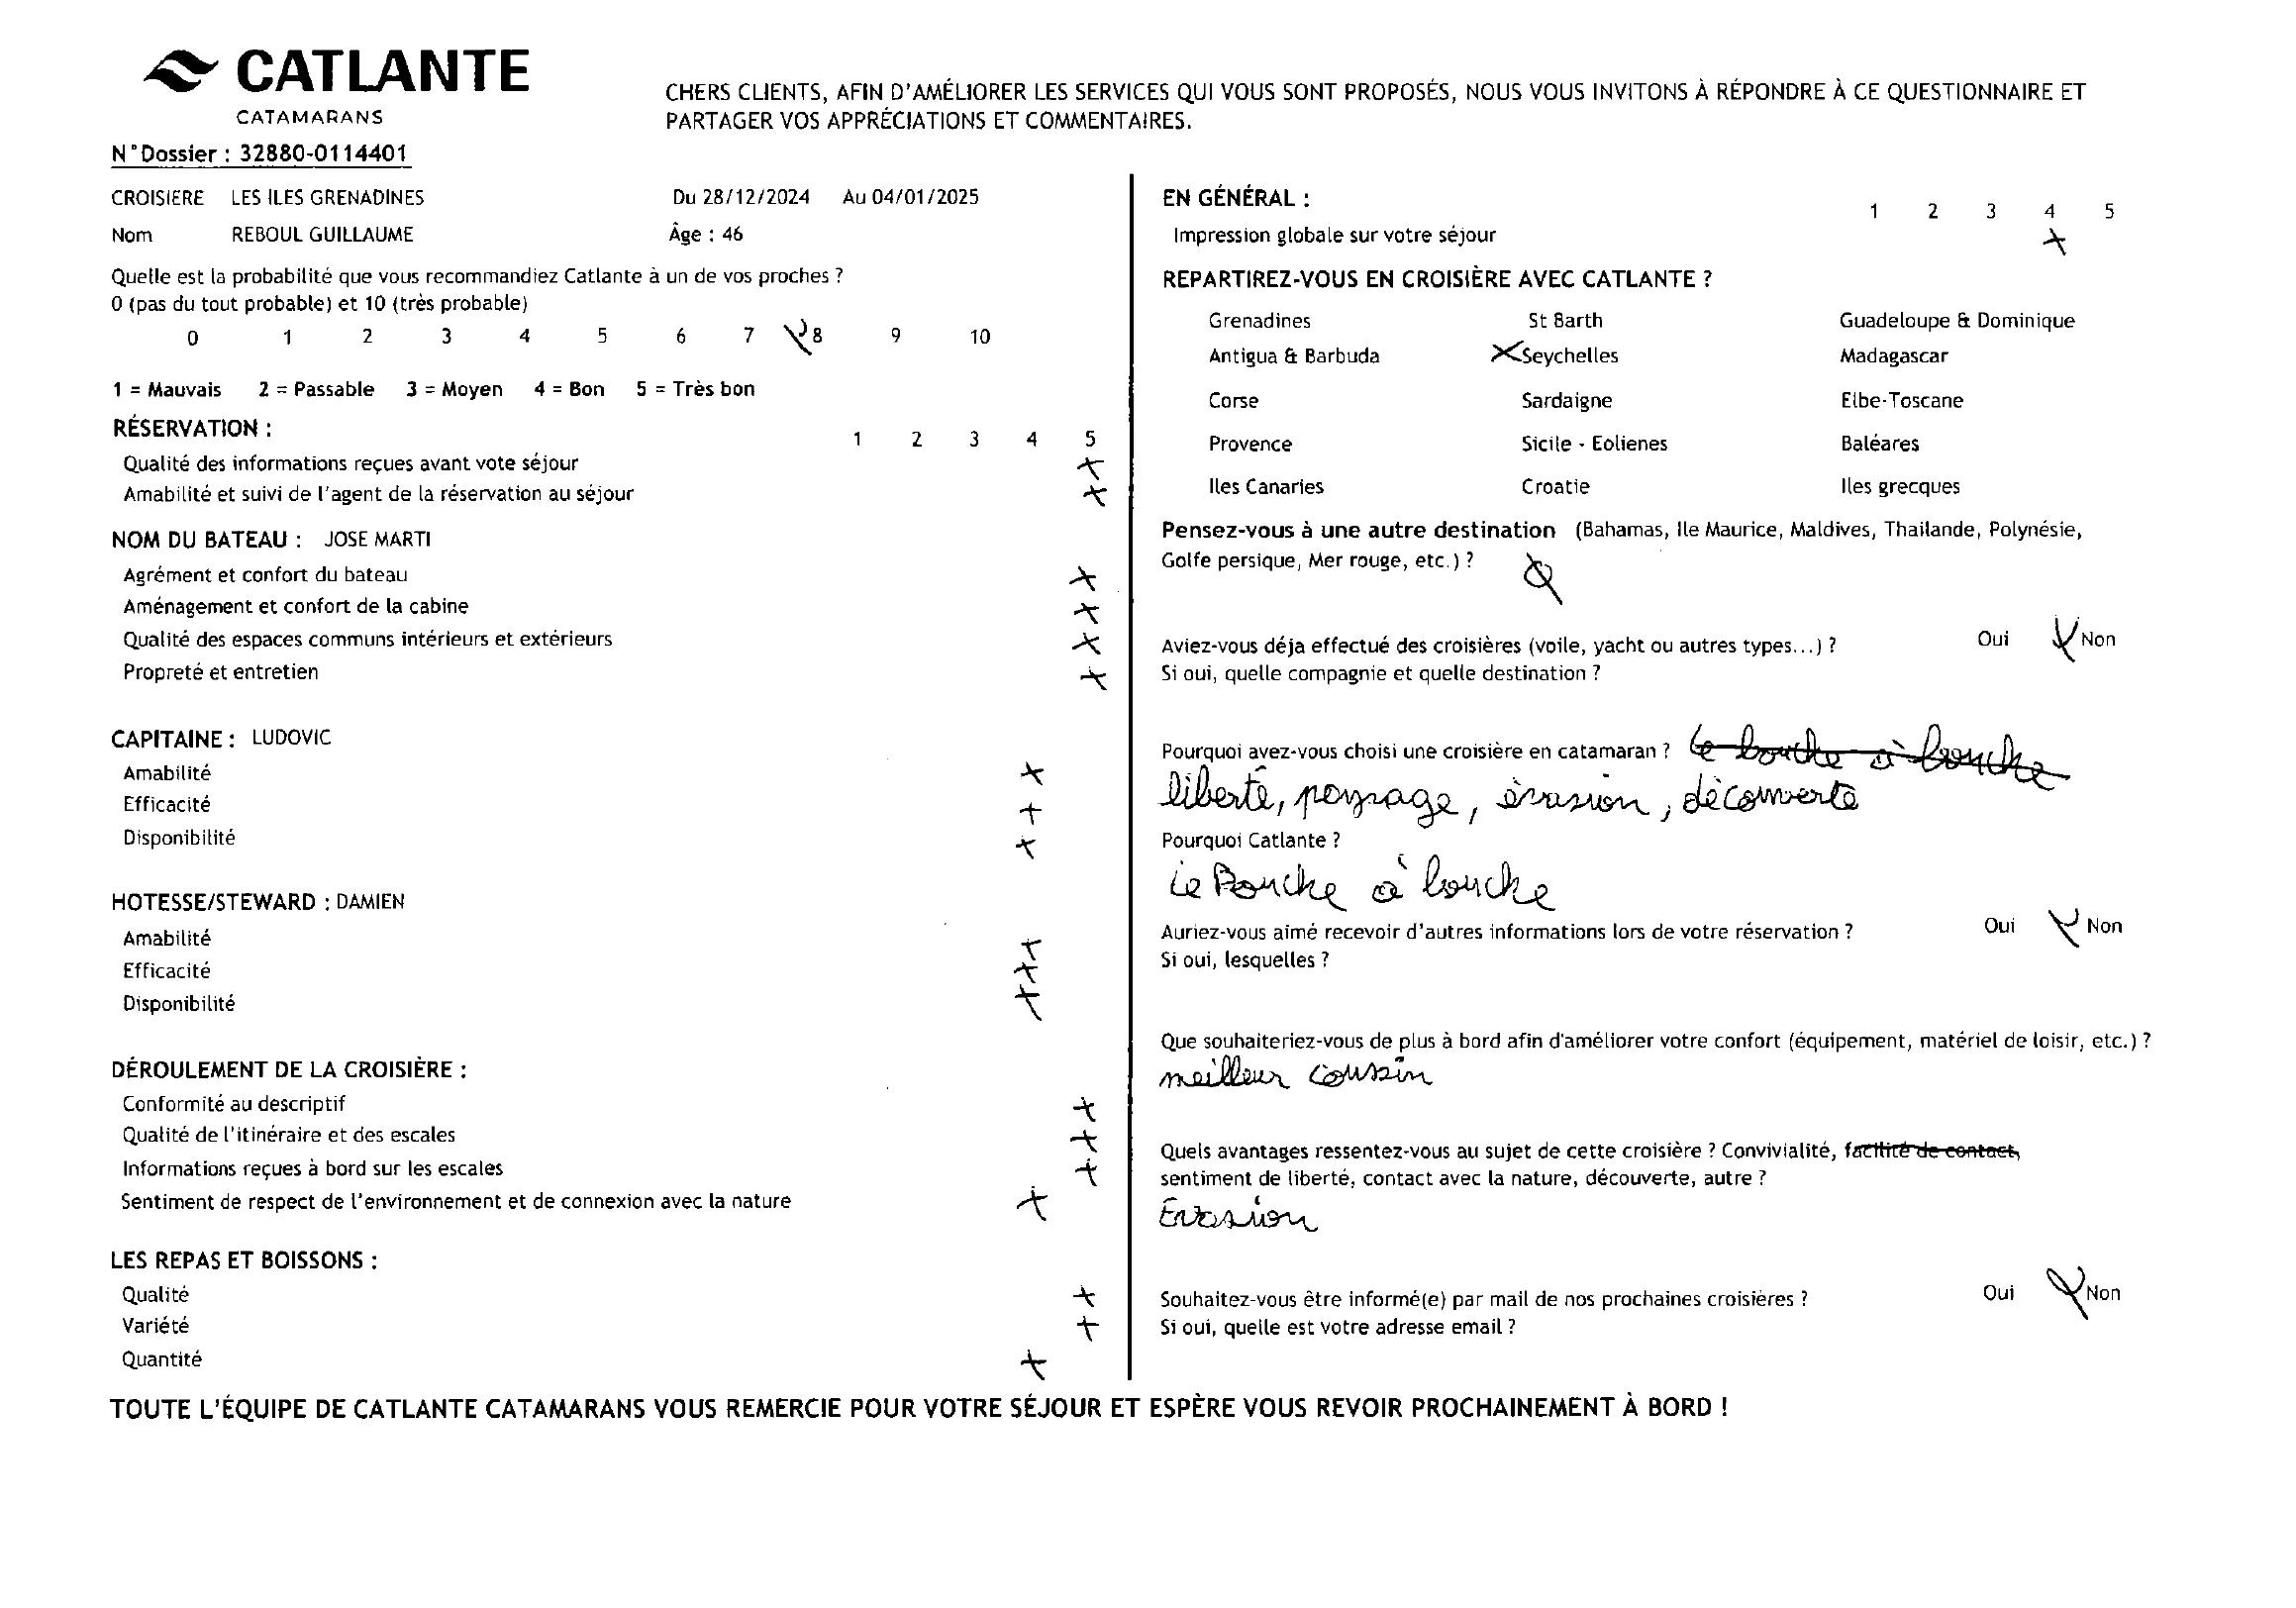 CATLANTE
CATAMARANS
CHERS CLIENTS, AFIN D'AMÉLIORER LES SERVICES QUI VOUS SONT PROPOSÉS, NOUS VOUS INVITONS À RÉPONDRE À CE QUESTIONNAIRE ET
PARTAGER VOS APPRÉCIATIONS ET COMMENTAIRES.
N°Dossier : 32880-0114401
CROISIERE LES ILES GRENADINES Du 28/12/2024 Au 04/01/2025
Nom REBOUL GUILLAUME Âge : 46
Quelle est la probabilité que vous recommandiez Catlante à un de vos proches ?
0 (pas du tout probable) et 10 (très probable)
0 1 2 3 4 5 6 7 8 9 10
1 = Mauvais 2 = Passable 3 = Moyen 4 = Bon 5 = Très bon
RÉSERVATION :
1 2 3 4 5
Qualité des informations reçues avant vote séjour
Amabilité et suivi de l'agent de la réservation au séjour
NOM DU BATEAU : JOSE MARTI
Agrément et confort du bateau
Aménagement et confort de la cabine
Qualité des espaces communs intérieurs et extérieurs
Propreté et entretien
CAPITAINE : LUDOVIC
Amabilité
Efficacité
Disponibilité
HOTESSE/STEWARD : DAMIEN
Amabilité
Efficacité
Disponibilité
DÉROULEMENT DE LA CROISIÈRE :
Conformité au descriptif
Qualité de l'itinéraire et des escales
Informations reçues à bord sur les escales
Sentiment de respect de l'environnement et de connexion avec la nature
LES REPAS ET BOISSONS :
Qualité
Variété
Quantité
EN GÉNÉRAL :
1 2 3 4 5
Impression globale sur votre séjour
REPARTIREZ-VOUS EN CROISIÈRE AVEC CATLANTE ?
Grenadines St Barth Guadeloupe & Dominique
Antigua & Barbuda Seychelles Madagascar
Corse Sardaigne Elbe-Toscane
Provence Sicile - Eolienes Baléares
Iles Canaries Croatie Iles grecques
Pensez-vous à une autre destination (Bahamas, Ile Maurice, Maldives, Thailande, Polynésie,
Golfe persique, Mer rouge, etc.) ?
Aviez-vous déja effectué des croisières (voile, yacht ou autres types...) ? Oui Non
Si oui, quelle compagnie et quelle destination ?
Pourquoi avez-vous choisi une croisière en catamaran ? Le bouche à bouche
liberté, paysage, évasion, découverte
Pourquoi Catlante ?
Le Bouche à bouche
Auriez-vous aimé recevoir d'autres informations lors de votre réservation ? Oui Non
Si oui, lesquelles ?
Que souhaiteriez-vous de plus à bord afin d'améliorer votre confort (équipement, matériel de loisir, etc.) ?
meilleur coussin
Quels avantages ressentez-vous au sujet de cette croisière ? Convivialité, facilité de contact,
sentiment de liberté, contact avec la nature, découverte, autre ?
Evasion
Souhaitez-vous être informé(e) par mail de nos prochaines croisières ? Oui Non
Si oui, quelle est votre adresse email ?
TOUTE L'ÉQUIPE DE CATLANTE CATAMARANS VOUS REMERCIE POUR VOTRE SÉJOUR ET ESPÈRE VOUS REVOIR PROCHAINEMENT À BORD !